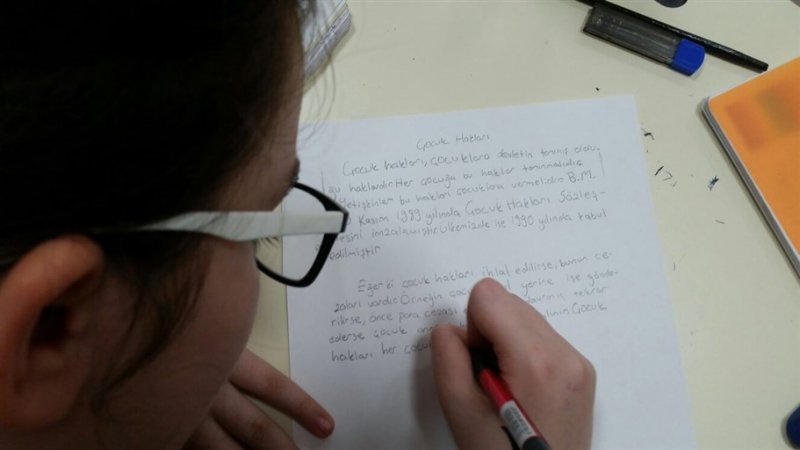 Çocuk Hakları
Çocuk hakları, çocuklara devletin tanımış olduğu
haklardır. Her çocuğa bu haklar tanınmalıdır.
Yetişkinler bu hakları çocuklara vermelidir. B.M.
Kasım 1989 yılında Çocuk Hakları Sözleş-
mesini imzalamıştır. Ülkemizde ise 1990 yılında kabul
edilmiştir.
Eğer ki çocuk hakları ihlal edilirse, bunun ce-
zaları vardır. Örneğin yerine işe gönde-
rilirse, önce para cezası tekrar
ederse çocuk Çocuk
hakları her